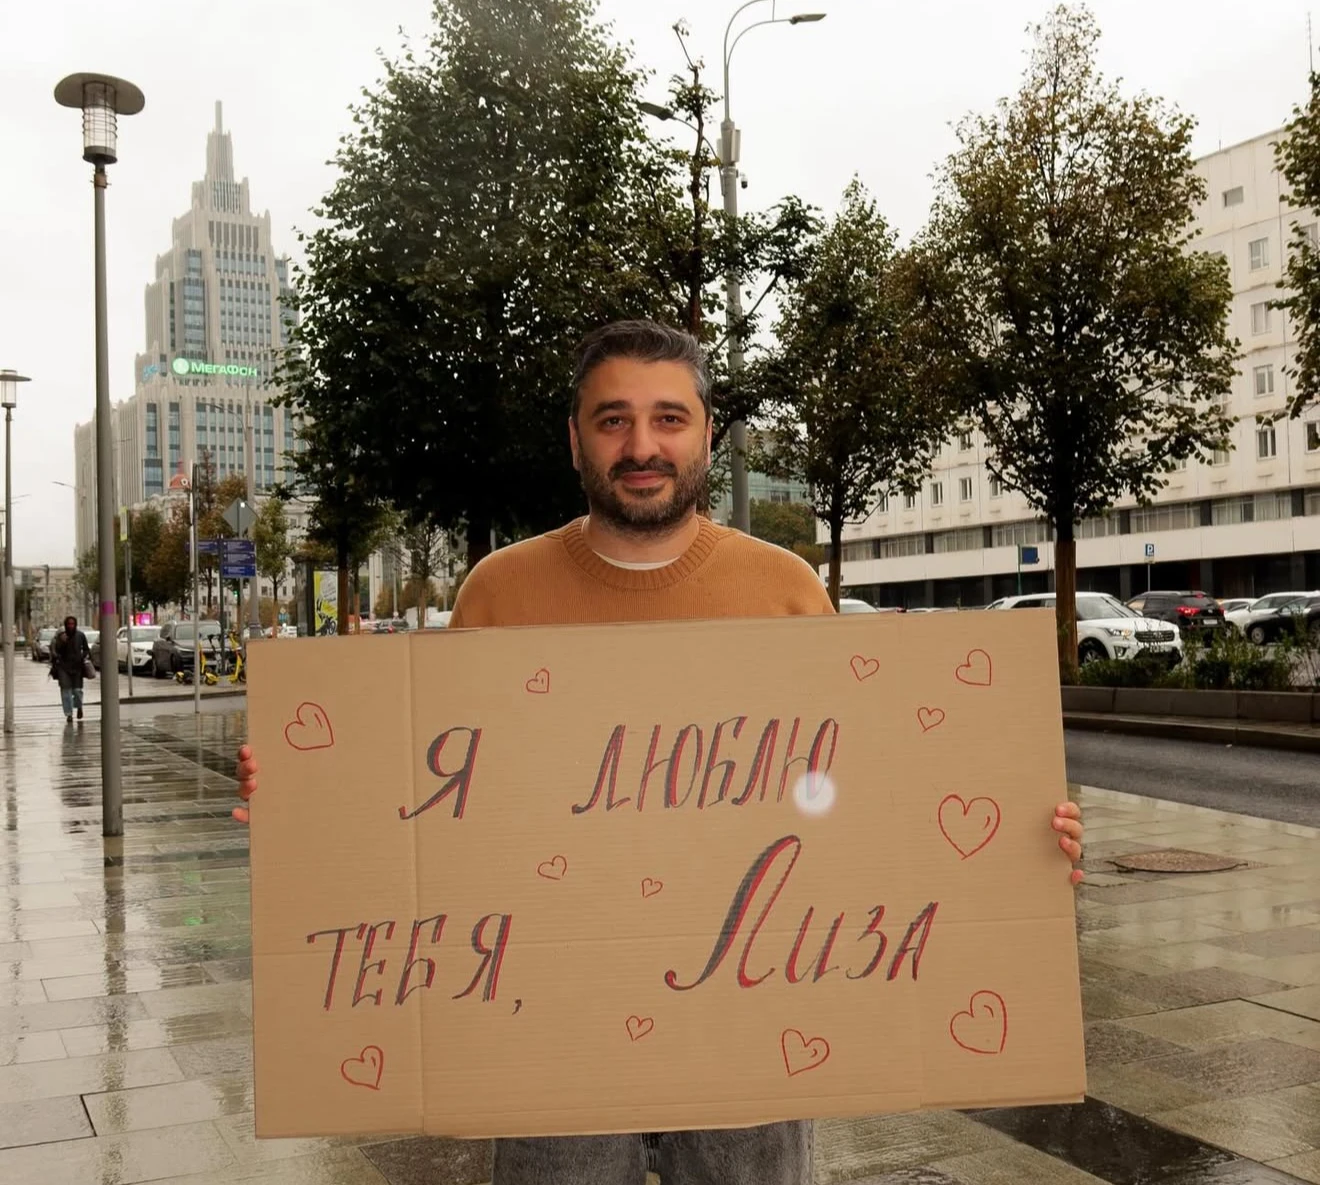 МЕГАФОН
Я ЛЮБЛЮ
ТЕБЯ, Лиза
P